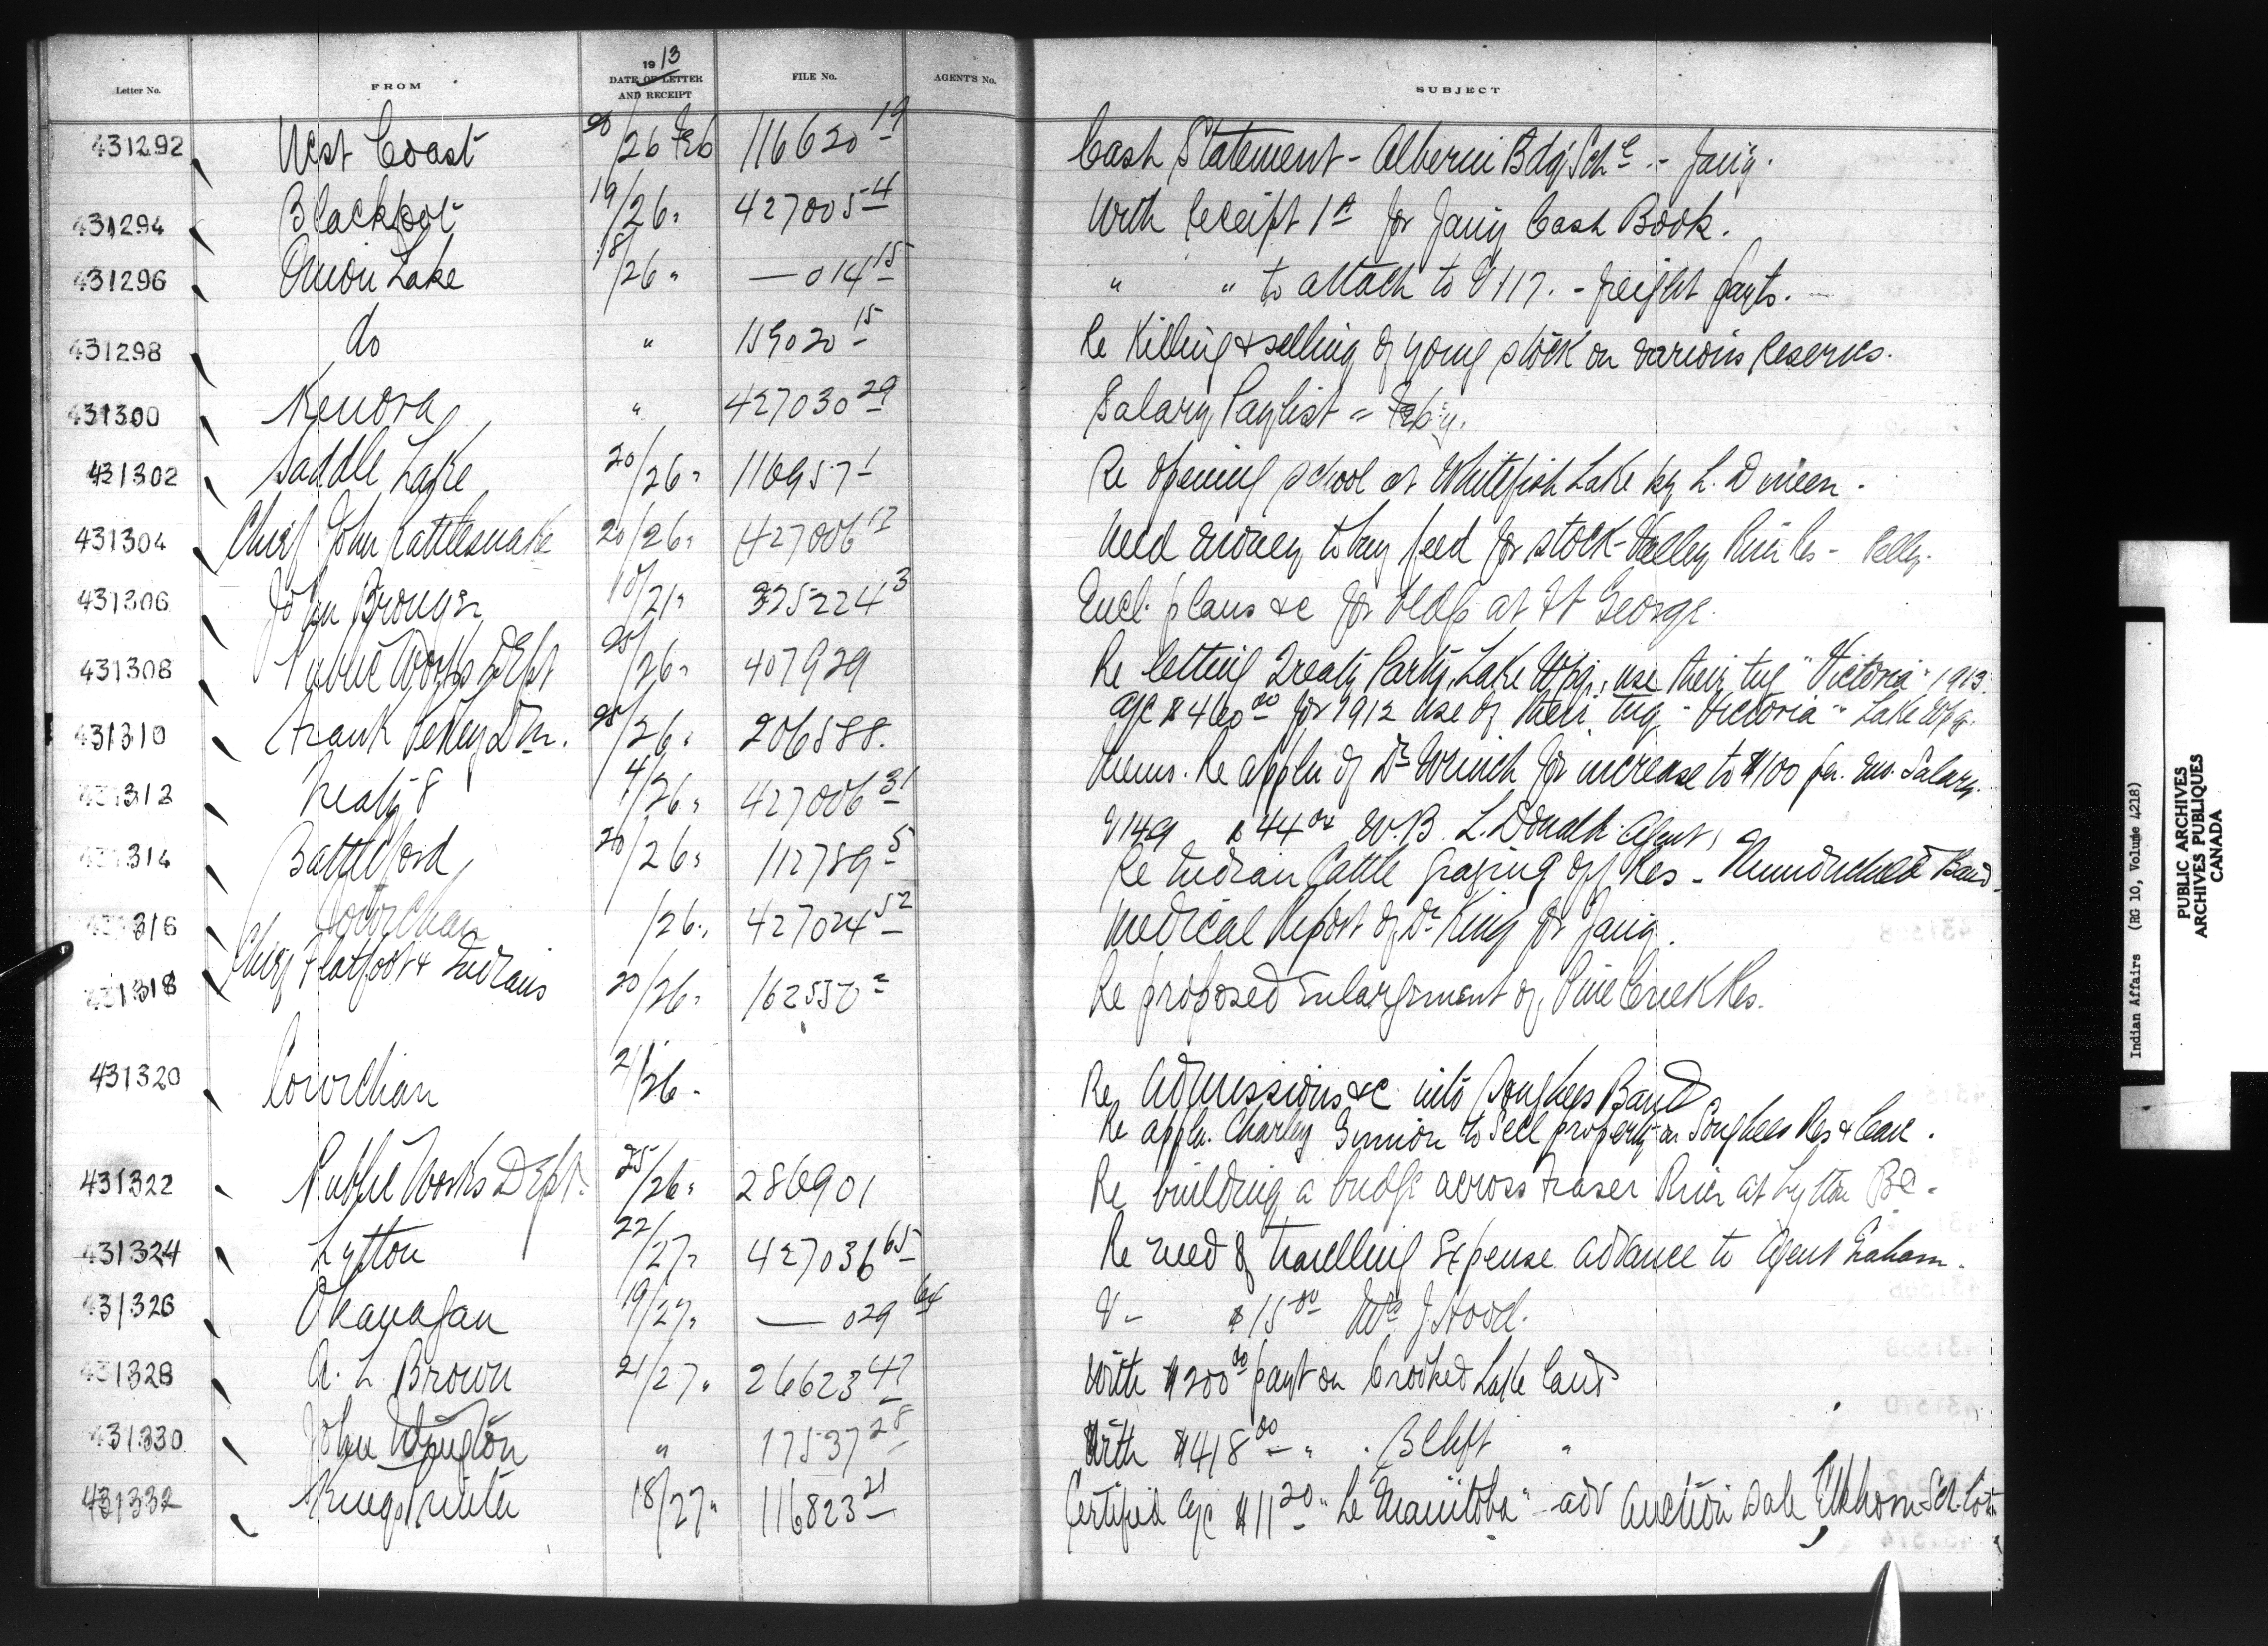 Letter No. FROM 1913 DATE OF LETTER AND RECEIPT FILE No. AGENT'S No. SUBJECT
431292 West Coast 20/26 Feb 116620 19 Cash Statement - Alberni Bdg Schl - Jan'y.
431294 Blackfoot 19/26 " 427005 4 With receipt 1a for Jany Cash Book.
431296 Onion Lake 18/26 " — 014 15 " " to attach to V 117. - freight payts. —
431298 do " 159020 15 Re Killing & selling of young stock on various Reserves.
431300 Kenora " 427030 29 Salary Paylist - Feb'y.
431302 Saddle Lake 20/26 " 116957 1 Re opening school at Whitefish Lake by L. Dineen.
431304 Chief John Rattlesnake 20/26 " 427006 17 Need money to buy feed for stock - Valley River Res - Pelly.
431306 John Brough 10/21 " 325224 3 Encl. plans &c for bldgs at Ft George.
431308 Public Works Dept 25/26 " 407929 Re letting Treaty Party, Lake Wpg., use their tug "Victoria" 1913.
a/c $460 00 for 1912 use of their tug "Victoria" Lake Wpg.
431310 Frank Pedley D m. 25/26 " 206588. Memo. Re appln of Dr Wrinch for increase to $100 per. mo. Salary.
431312 Treaty 8 4/26 " 427006 31 V 149 $44 W. B. L. Donald Agent,
431314 Battleford 20/26 " 112789 5 Re Indian Cattle grazing off Res - Band.
431316 Cowichan /26 " 427024 52 Medical Report of Dr King for Jan'y.
431318 Chief Flatfoot & Indians 20/26 " 162550 2 Re proposed enlargement of Pine Creek Res.
431320 Cowichan 21/26 - Re Admissions &c into Songhees Band
Re appln. Charley to sell property on Songhees Res & leave.
431322 Public Works Dept. 25/26 " 286901 Re building a bridge across Fraser River at Lytton BC.
431324 Lytton 22/27 " 427036 65 Re need of travelling expense advance to Agent Graham.
431326 Okanagan 19/27 " — 029 64 V - $15 00 Mrs J. Hood.
431328 A. L. Brown 21/27 " 26623 47 With $200 00 payt on Crooked Lake land
431330 John Wington " 17537 28 With $418 00 " " B Clift "
431332 Kings Printer 18/27 " 116823 21 Certified a/c $11 20 "Le Manitoba" - adv Auction sale, Elkhorn Sch. Lots
Indian Affairs (RG 10, Volume 4218)
PUBLIC ARCHIVES
ARCHIVES PUBLIQUES
CANADA